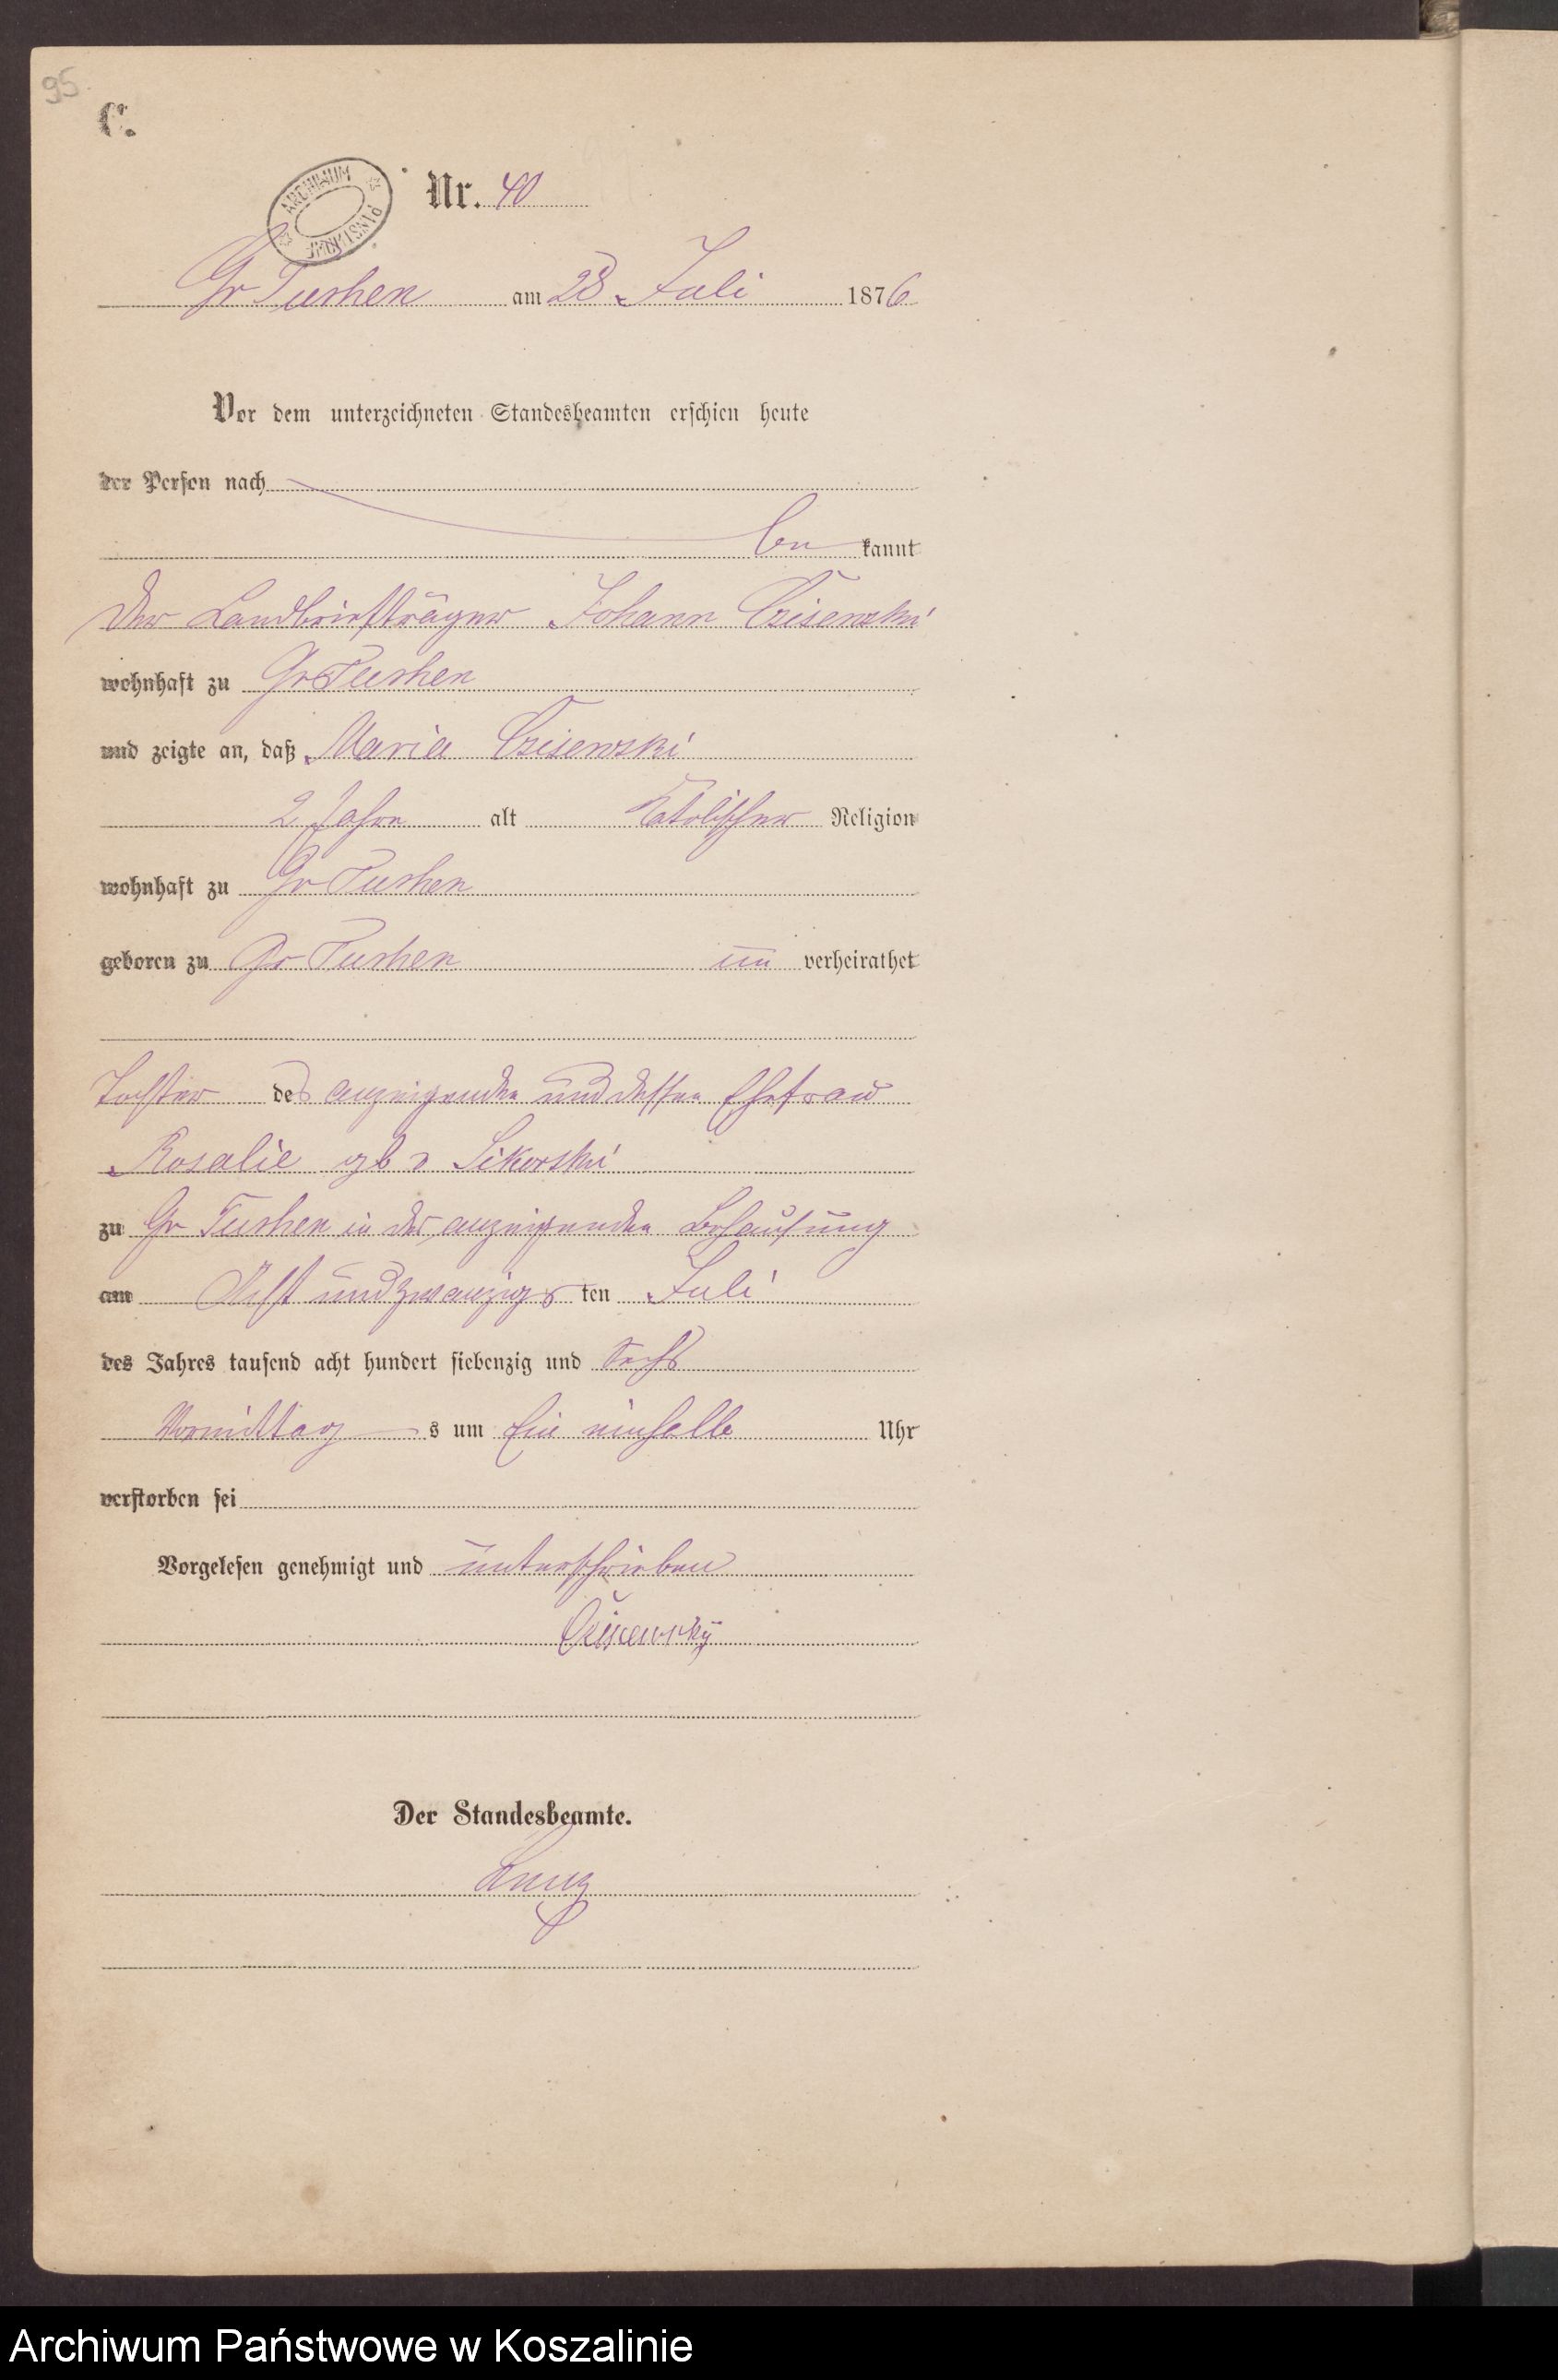 95.
C.
ARCHIWUM PAŃSTWOWE
Nr. 40
Gr Tuchen am 28 Juli 1876
Vor dem unterzeichneten Standesbeamten erschien heute
der Person nach
be kannt
der Landbriefträger Johann Czisewski
wohnhaft zu Gr Tuchen
und zeigte an, daß Maria Czisewski
2 Jahre alt Katolischer Religion
wohnhaft zu Gr Tuchen
geboren zu Gr Tuchen un verheirathet
Tochter des anzeigenden und dessen Ehefrau
Rosalie gb v Sikorski
zu Gr Tuchen in der anzeigenden Behausung
am Acht und zwanzigs ten Juli
des Jahres tausend acht hundert siebenzig und Sechs
Vormittag s um Ein einhalb Uhr
verstorben sei
Vorgelesen genehmigt und unterschrieben
Der Standesbeamte.
Archiwum Państwowe w Koszalinie